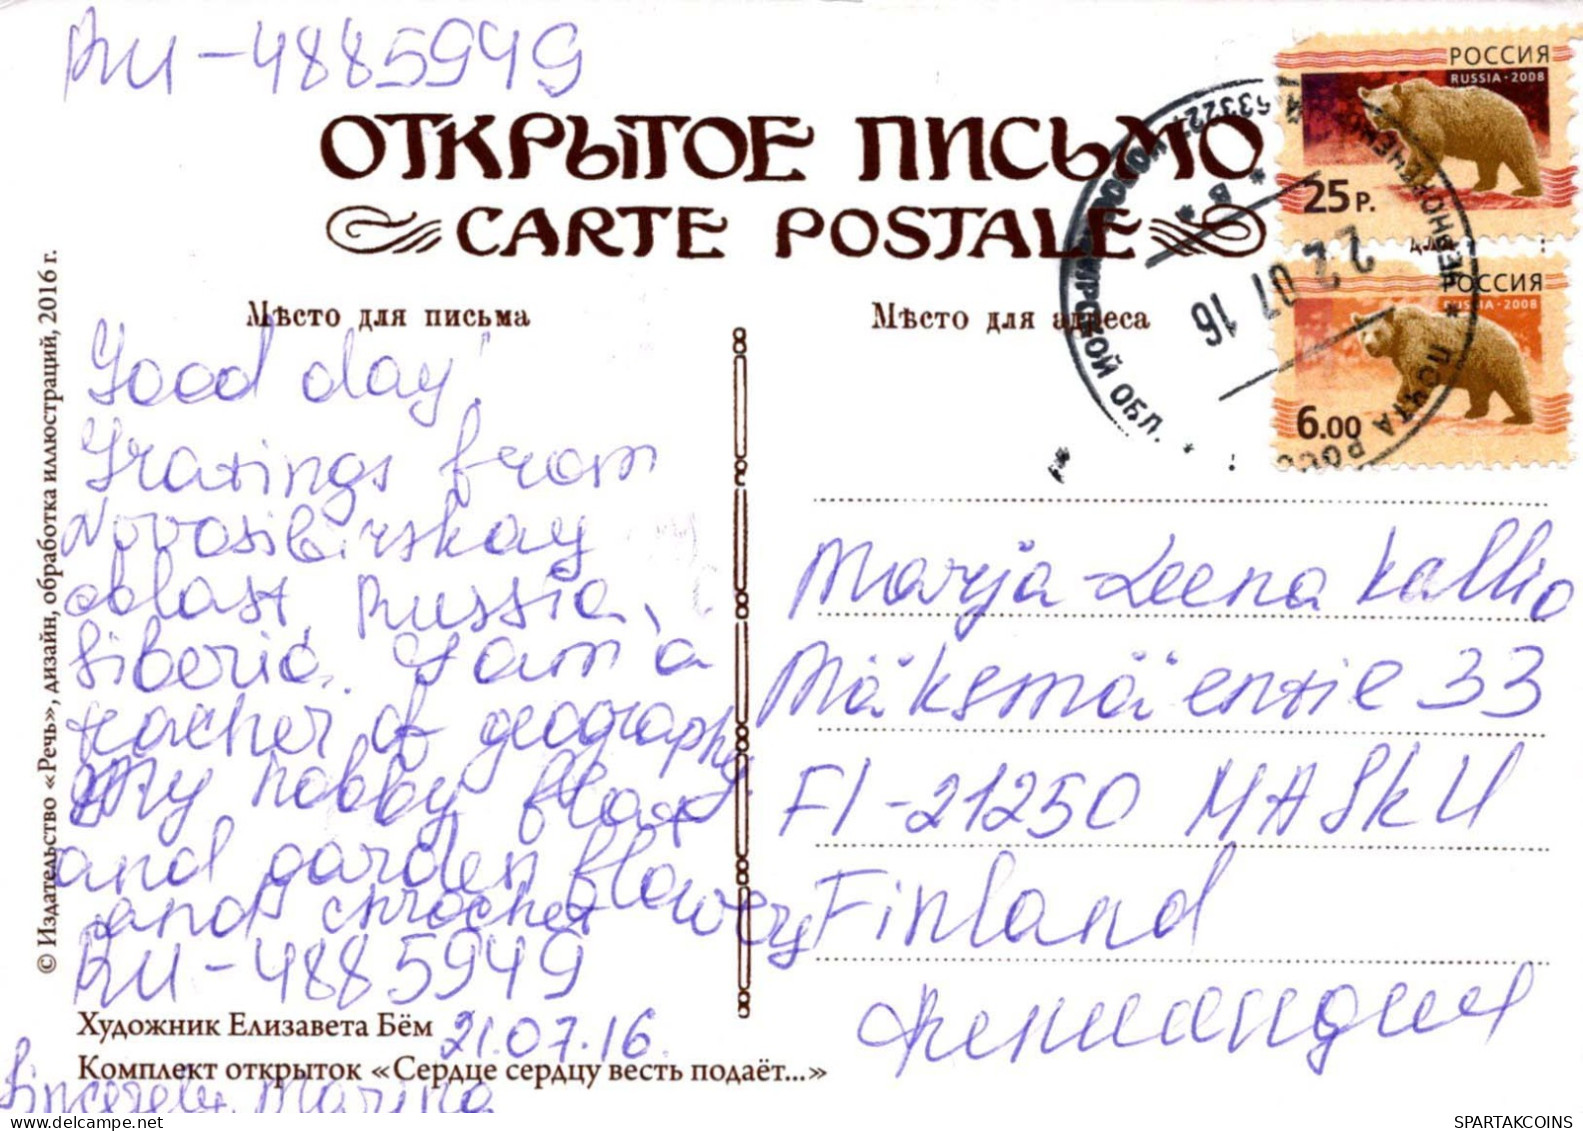 RU-4885949
ОТКРЫТОЕ ПИСЬМО
CARTE POSTALE
Мѣсто для письма
Good day!
Gratings from
Novosibirskay
oblast, Russia,
Siberia. I am a
teacher of geography.
My hobby
and garden flowery
and chrochet
RU-4885949
21.07.16
Sincerely, Marina
Художник Елизавета Бём
Комплект открыток «Сердце сердцу весть подаёт...»
© Издательство «Речь», дизайн, обработка иллюстраций, 2016 г.
РОССИЯ
RUSSIA · 2008
25 Р.
РОССИЯ
RUSSIA · 2008
6.00
22 07 16
* В *
ОЙ ОБЛ. *
ПОЧТА РОСС
Мѣсто для адреса
Marja-Leena Kallio
Mäksmäentie 33
FI-21250 MASKU
Finland
Финляндия
SPARTAKCOINS